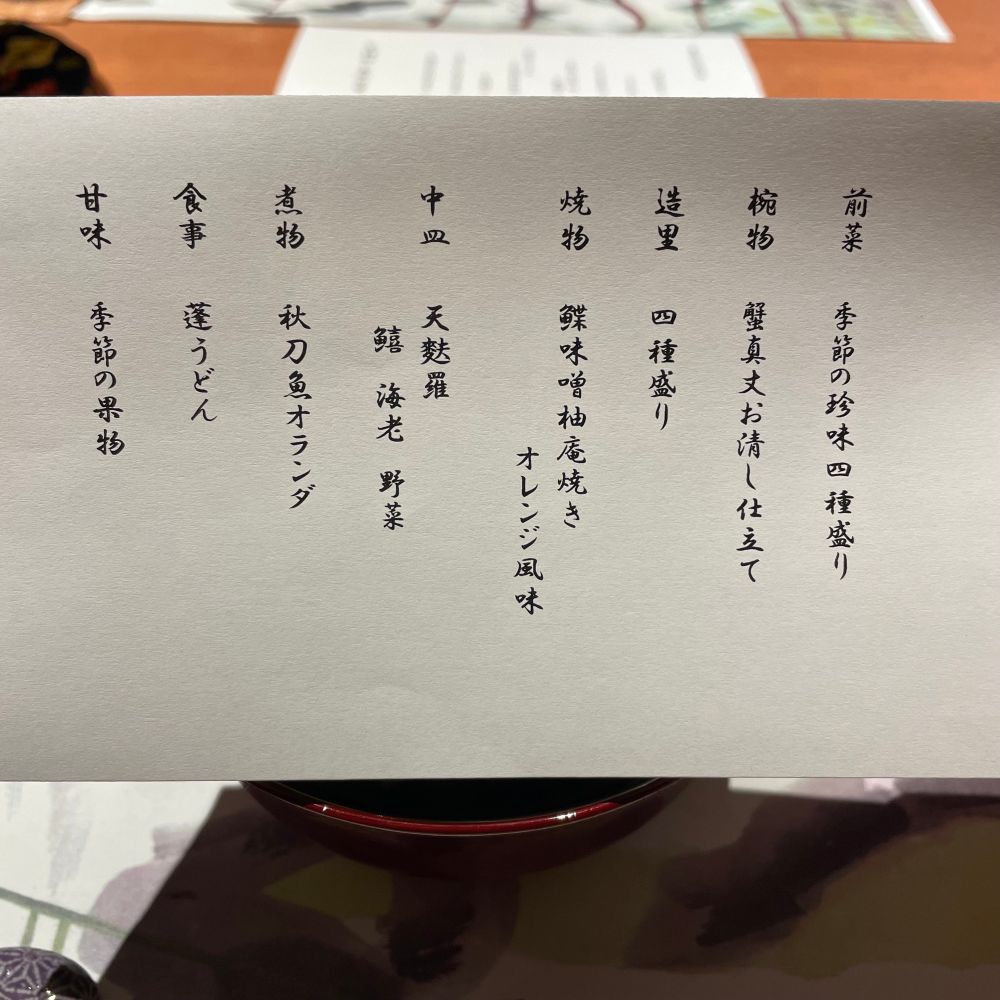 前菜　季節の珍味四種盛り
椀物　蟹真丈お清し仕立て
造里　四種盛り
焼物　鰈味噌柚庵焼き
オレンジ風味
中皿　天麩羅
鱚　海老　野菜
煮物　秋刀魚オランダ
食事　蓬うどん
甘味　季節の果物